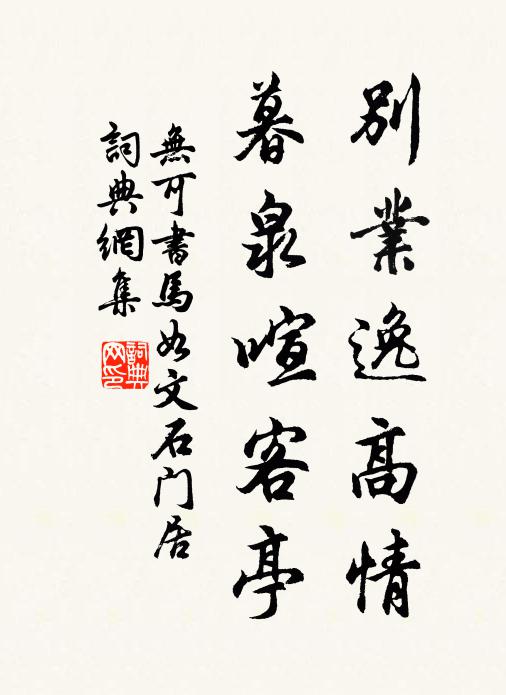 別業逸高情
暮泉喧客亭
無可書馬如文石門居
詞典網集
詞典网印